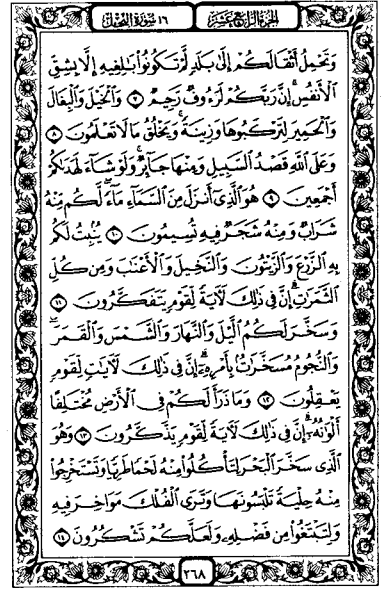 الجزء الرابع عشر ١٦ سورة النحل
وَتَحْمِلُ أَثْقَالَكُمْ إِلَىٰ بَلَدٍ لَّمْ تَكُونُوا۟ بَٰلِغِيهِ إِلَّا بِشِقِّ
ٱلْأَنفُسِ ۚ إِنَّ رَبَّكُمْ لَرَءُوفٌ رَّحِيمٌ ٧ وَٱلْخَيْلَ وَٱلْبِغَالَ
وَٱلْحَمِيرَ لِتَرْكَبُوهَا وَزِينَةً ۚ وَيَخْلُقُ مَا لَا تَعْلَمُونَ ٨
وَعَلَى ٱللَّهِ قَصْدُ ٱلسَّبِيلِ وَمِنْهَا جَآئِرٌ ۚ وَلَوْ شَآءَ لَهَدَىٰكُمْ
أَجْمَعِينَ ٩ هُوَ ٱلَّذِىٓ أَنزَلَ مِنَ ٱلسَّمَآءِ مَآءً ۖ لَّكُم مِّنْهُ
شَرَابٌ وَمِنْهُ شَجَرٌ فِيهِ تُسِيمُونَ ١٠ يُنۢبِتُ لَكُم
بِهِ ٱلزَّرْعَ وَٱلزَّيْتُونَ وَٱلنَّخِيلَ وَٱلْأَعْنَٰبَ وَمِن كُلِّ
ٱلثَّمَرَٰتِ ۗ إِنَّ فِى ذَٰلِكَ لَءَايَةً لِّقَوْمٍ يَتَفَكَّرُونَ ١١
وَسَخَّرَ لَكُمُ ٱلَّيْلَ وَٱلنَّهَارَ وَٱلشَّمْسَ وَٱلْقَمَرَ ۖ
وَٱلنُّجُومُ مُسَخَّرَٰتٌۢ بِأَمْرِهِۦٓ ۗ إِنَّ فِى ذَٰلِكَ لَءَايَٰتٍ لِّقَوْمٍ
يَعْقِلُونَ ١٢ وَمَا ذَرَأَ لَكُمْ فِى ٱلْأَرْضِ مُخْتَلِفًا
أَلْوَٰنُهُۥٓ ۗ إِنَّ فِى ذَٰلِكَ لَءَايَةً لِّقَوْمٍ يَذَّكَّرُونَ ١٣ وَهُوَ
ٱلَّذِى سَخَّرَ ٱلْبَحْرَ لِتَأْكُلُوا۟ مِنْهُ لَحْمًا طَرِيًّا وَتَسْتَخْرِجُوا۟
مِنْهُ حِلْيَةً تَلْبَسُونَهَا وَتَرَى ٱلْفُلْكَ مَوَاخِرَ فِيهِ
وَلِتَبْتَغُوا۟ مِن فَضْلِهِۦ وَلَعَلَّكُمْ تَشْكُرُونَ ١٤
٢٦٨